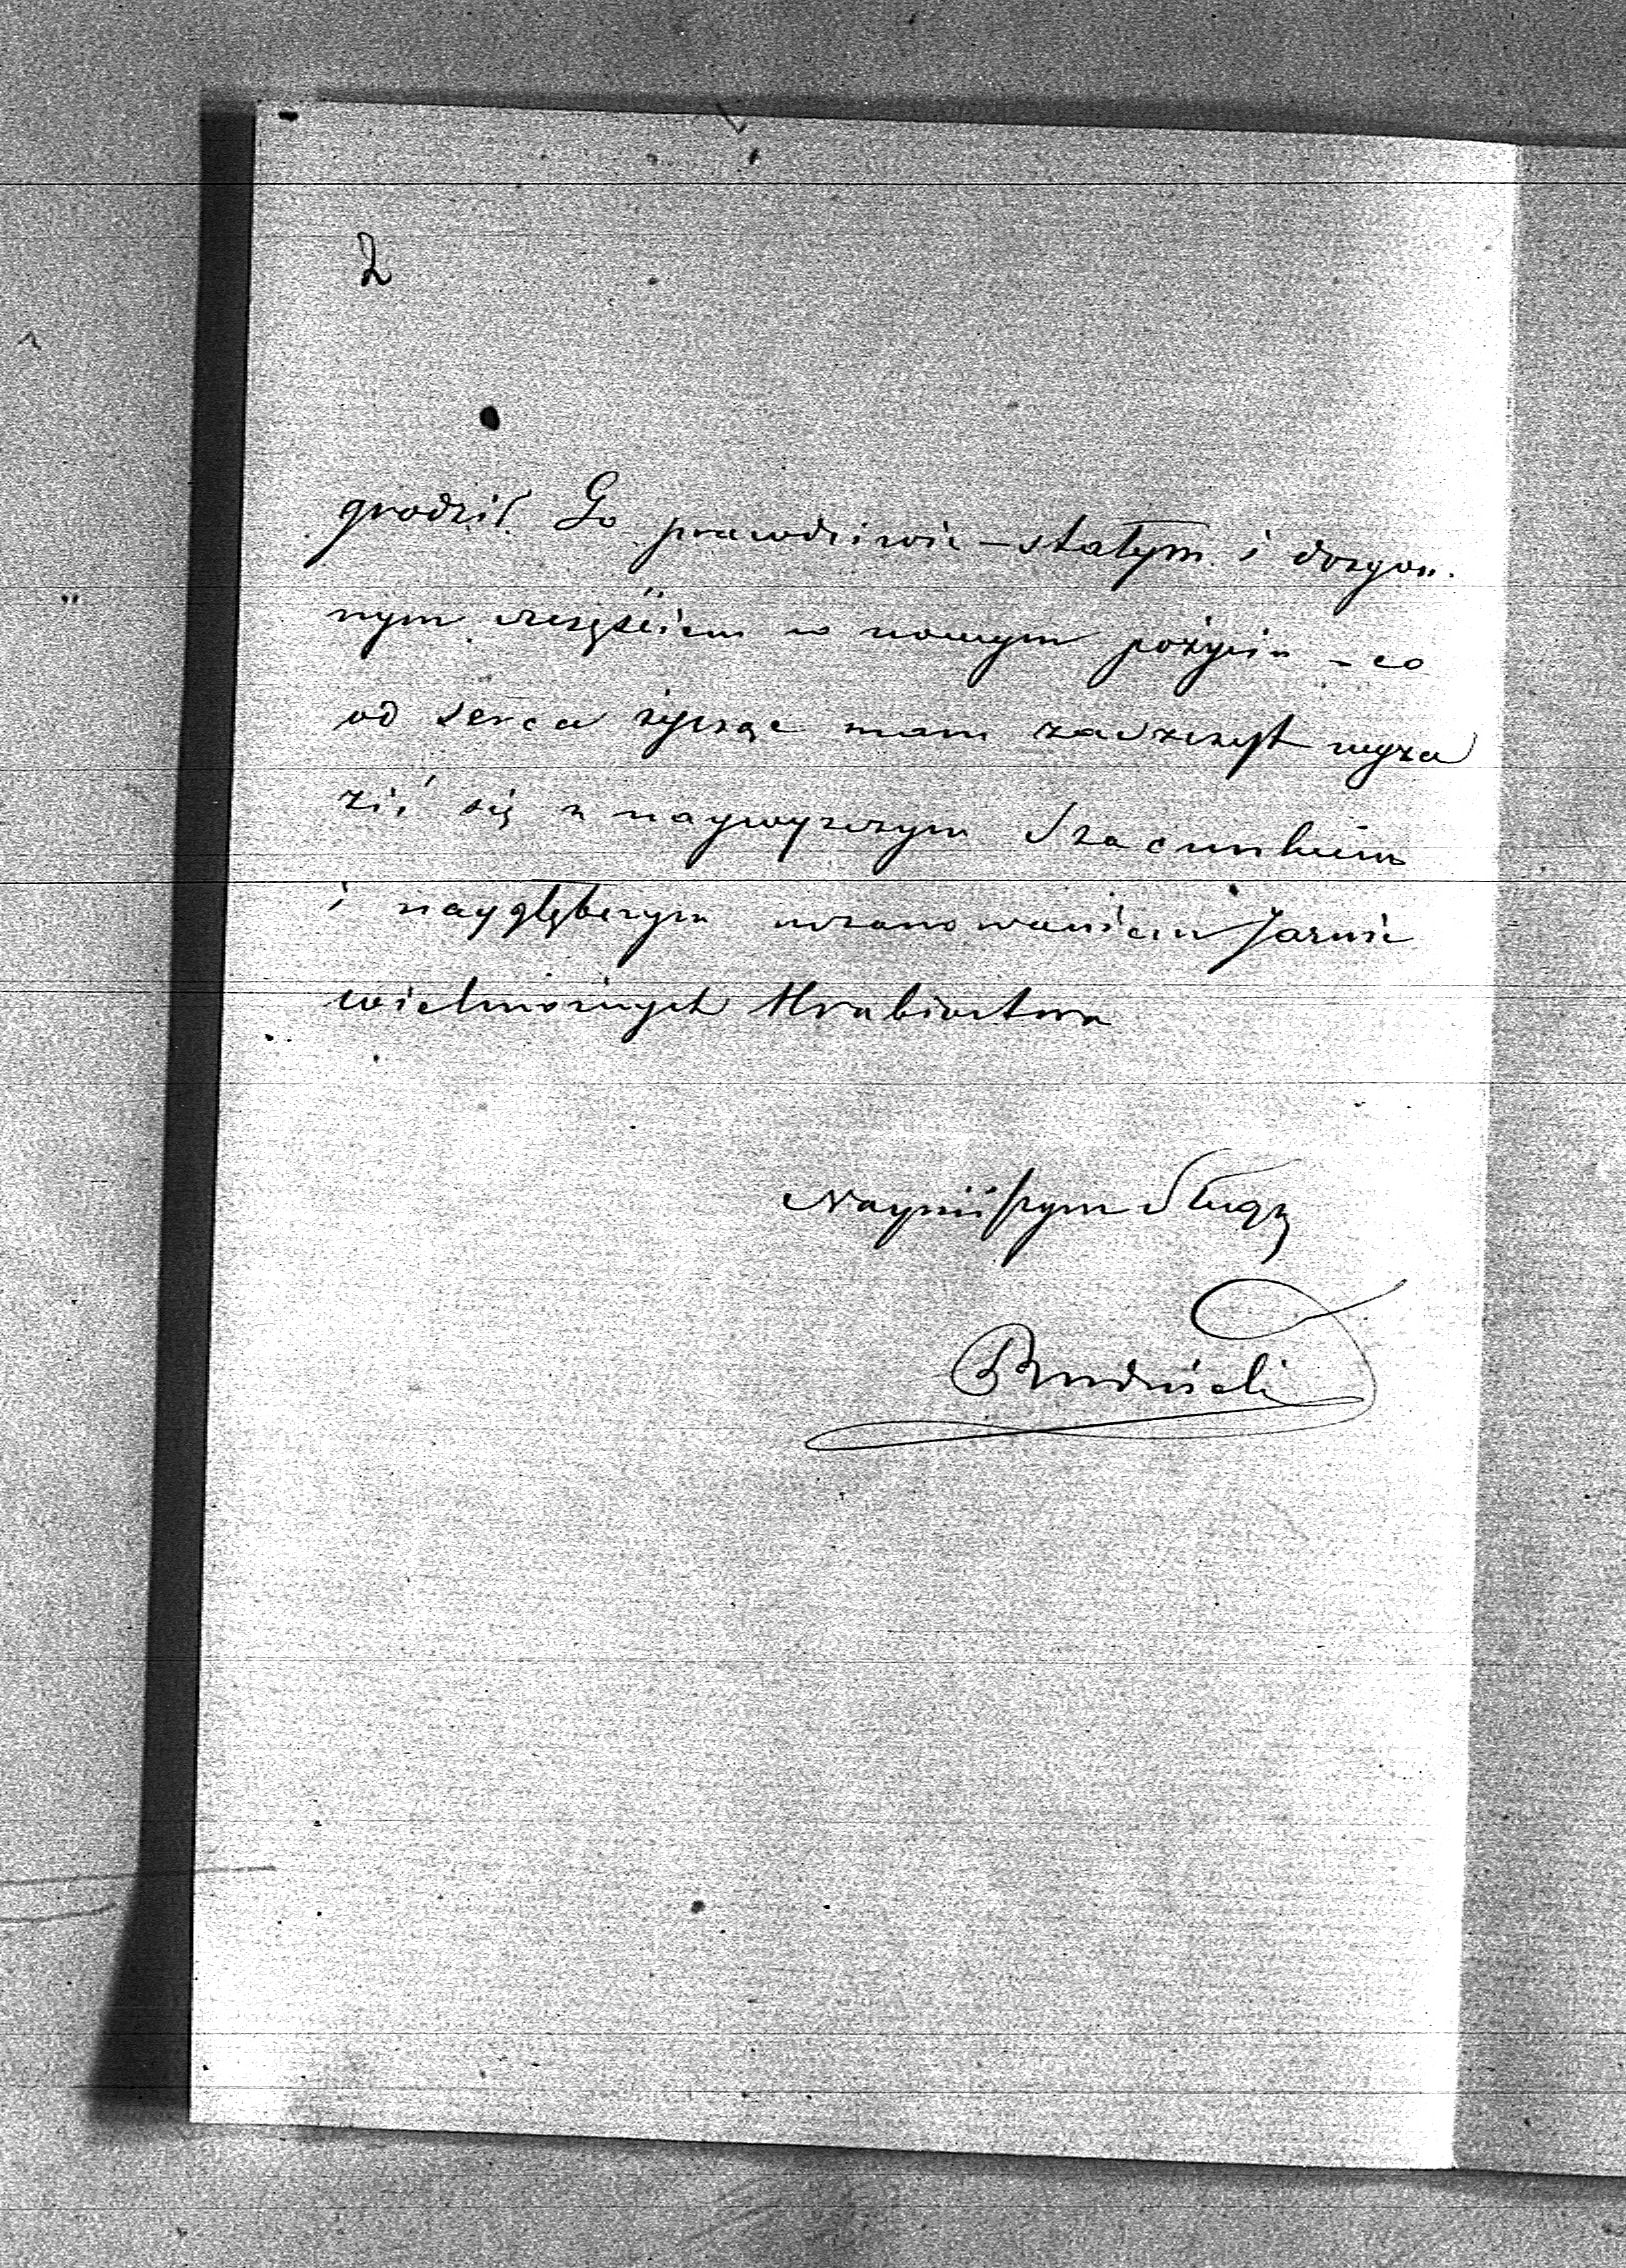 2
grodził Go prawdziwie – stałym i dozgon.
nym szczęściem w nowym pożyciu – co
od serca życząc mam zaszczyt wyra
zić się z naywyższym Szacunkiem
i naygłębszym uszanowaniem Jaśnie
wielmożnych Hrabiostwa
Nayniższym Sługą
Rudnicki